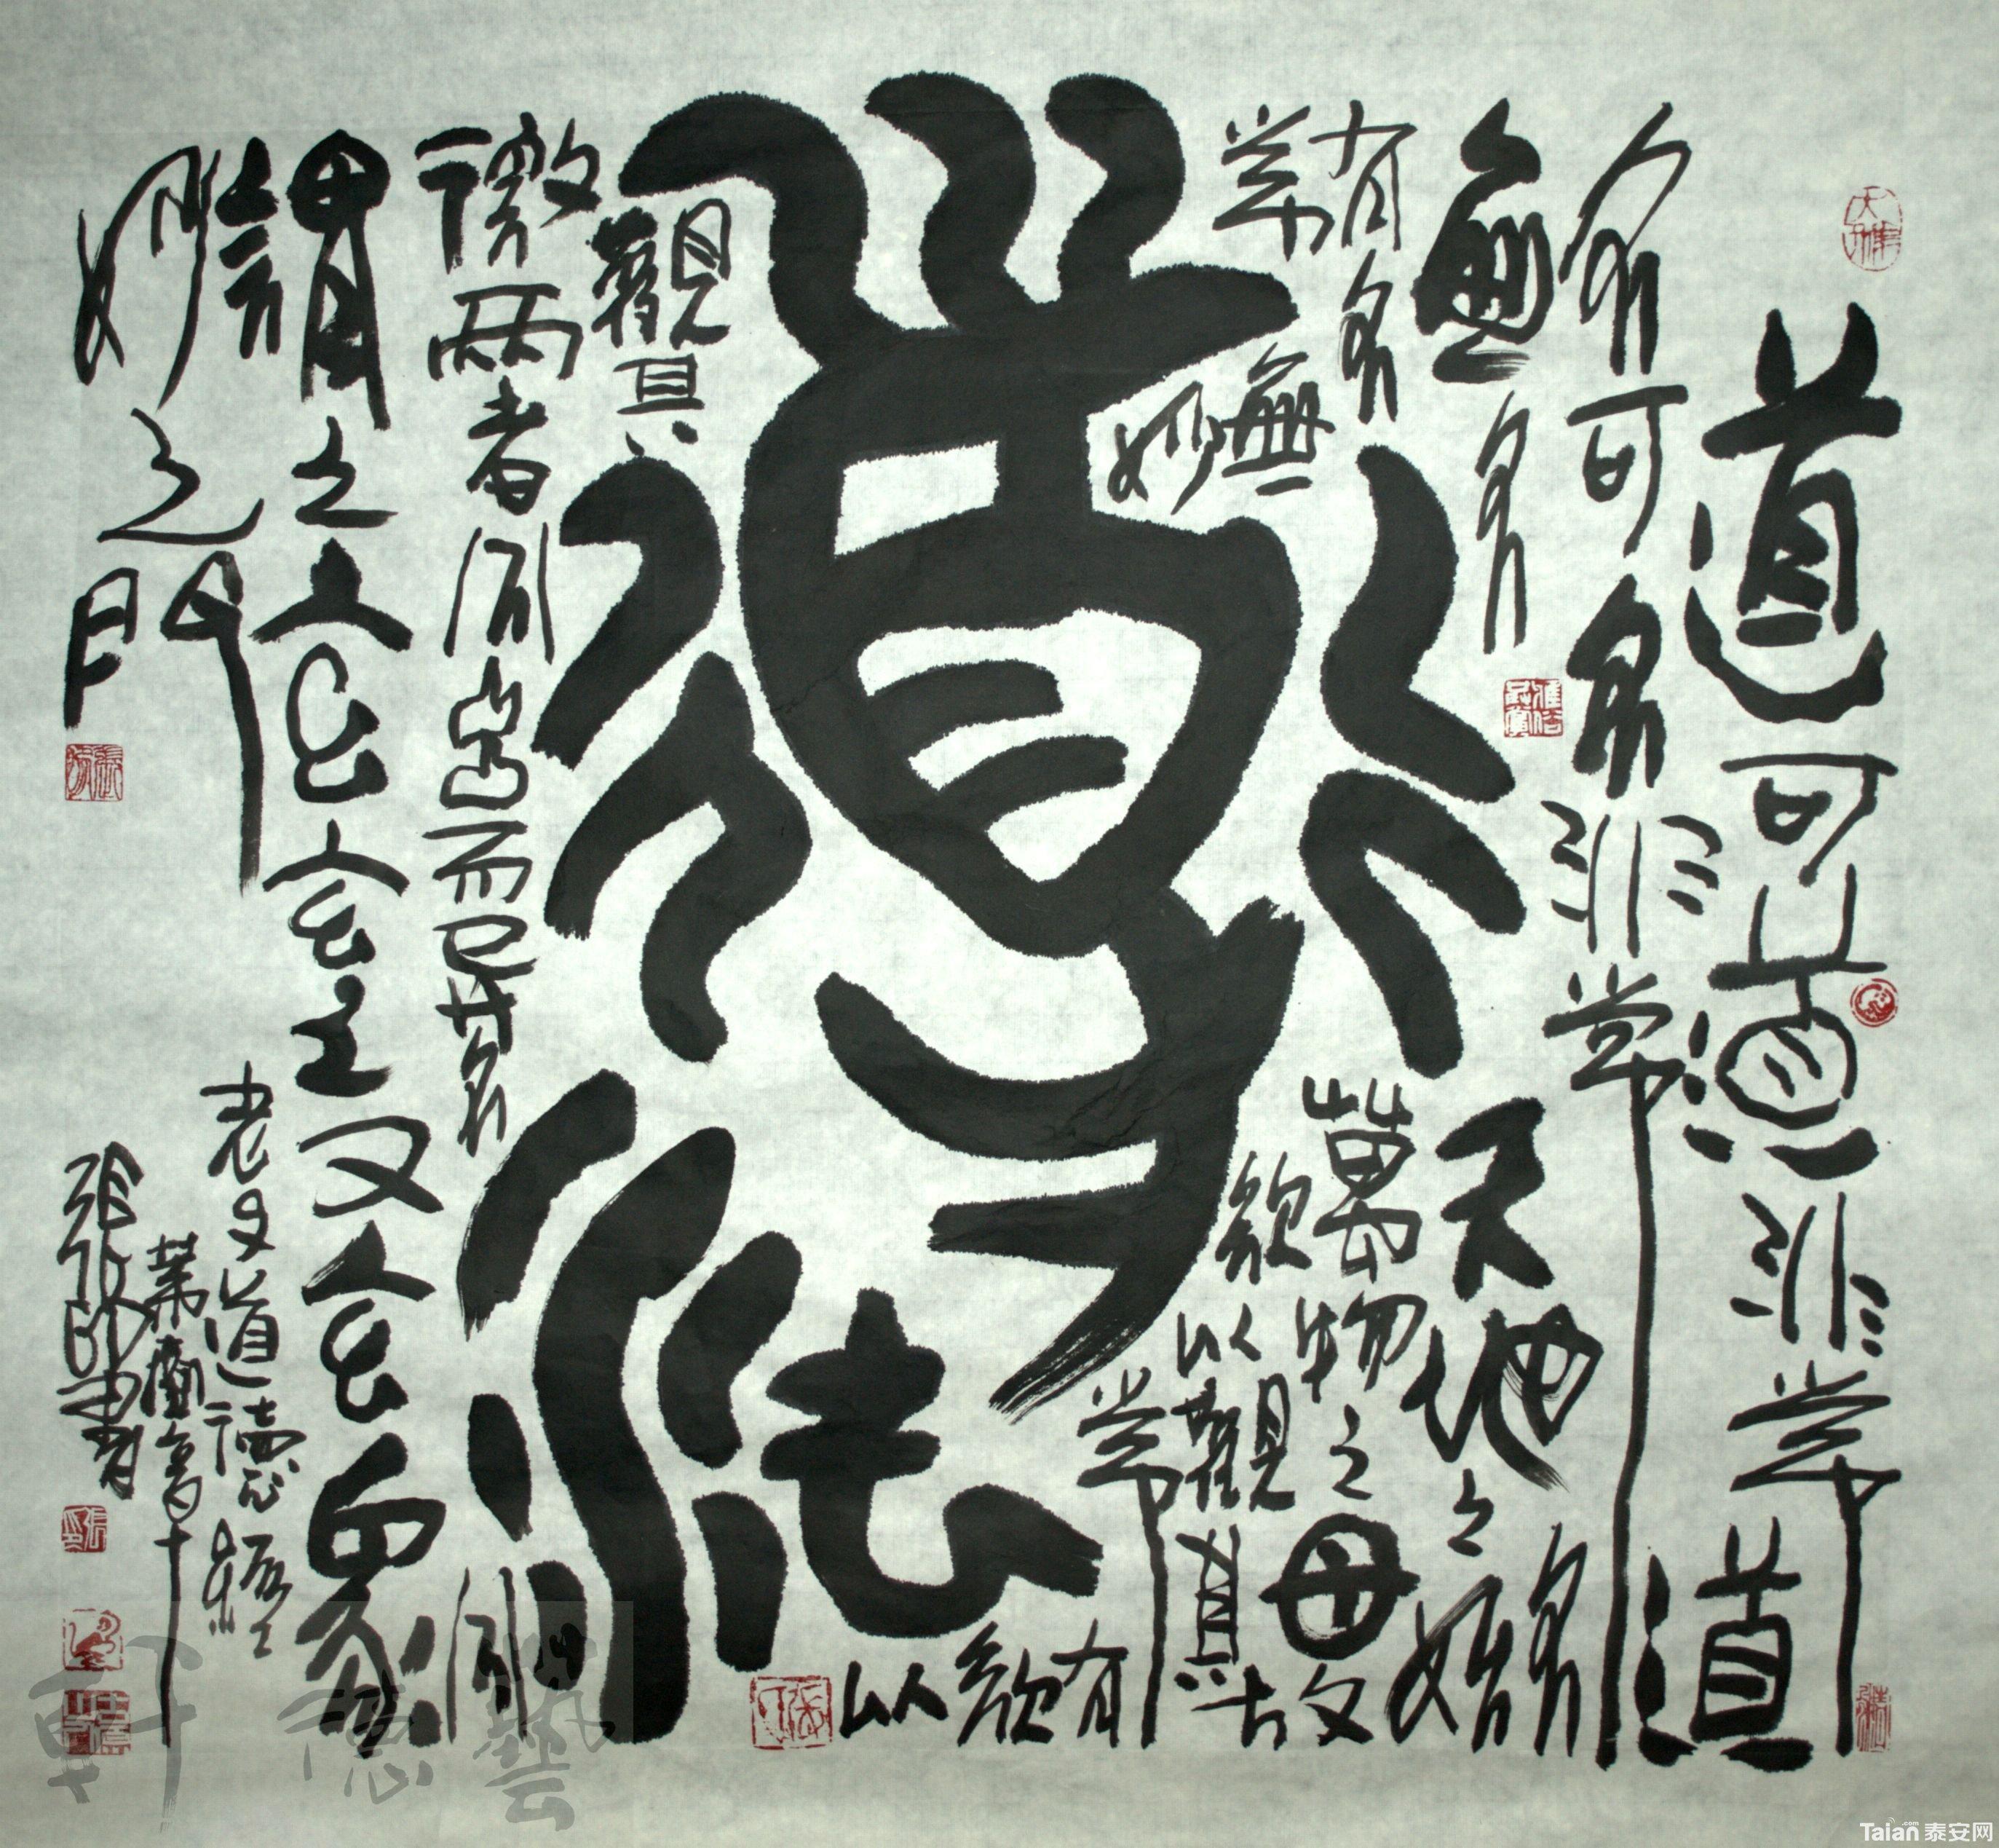 道可道非常道
名可名非常名
無名天地之始
有名萬物之母故
常無欲以觀其妙
常有欲以
觀其
徼兩者同出而異名同
謂之玄玄之又玄眾
妙之門
老子道德經
藝德軒
Taian.com 泰安网